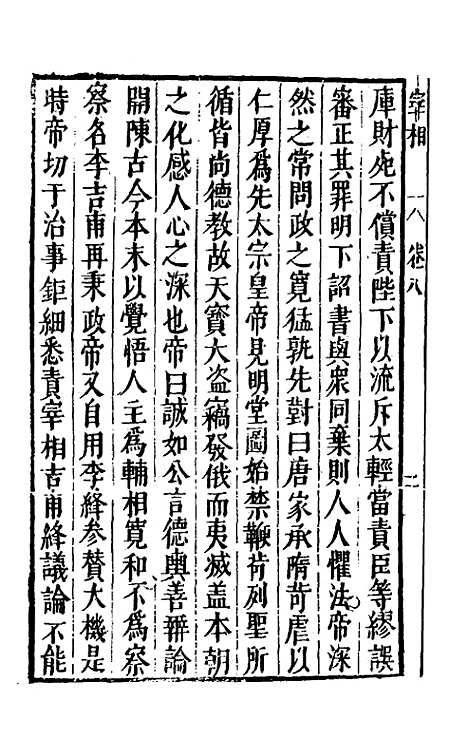 宰相 卷八 二
庫財死不償責陛下以流斥太輕當責臣等繆誤
審正其罪明下詔書與衆同棄則人人懼法帝深
然之常問政之寬猛孰先對曰唐家承隋苛虐以
仁厚爲先太宗皇帝見明堂圖始禁鞭背列聖所
循皆尚德教故天寶大盜竊發俄而夷滅盖本朝
之化感人心之深也帝曰誠如公言德輿善辨論
開陳古今本末以覺悟人主爲輔相寬和不爲察
察名李吉甫再秉政帝又自用李絳參贊大機是
時帝切于治事鉅細悉責宰相吉甫絳議論不能